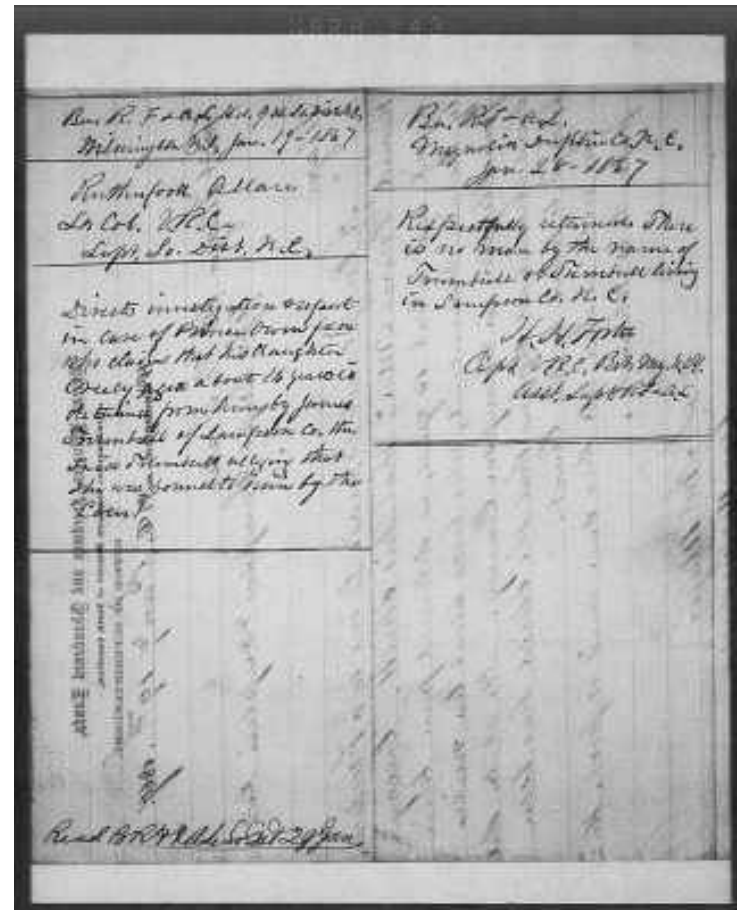 Bu. R. F. & A. L. Hd. Qrs. So. Dist. N.C.
Wilmington N.C. Jan. 19 - 1867
Rutherfook Allan
Lt Col. V.R.C.
Supt. So. Dist. N.C.
Directs investigation & report
in case of
who claims that his daughter
age about 14 years is
detained from him by James
Trumbull of Sampson Co. the
said Trumbull alleging that
she was bound to him by the
Court
Recd B.R.F. & A.L. So. Dist 29 Jan.
Bu. R F & A L.
Magnolia Duplin Co. N.C.
Jan. 28 - 1867
Respectfully returned. There
is no man by the name of
Trumbull or Turnbull living
in Sampson Co. N. C.
H. H. Foster
Capt V.R.C. Bvt. Maj. U.S.V.
Asst. Supt